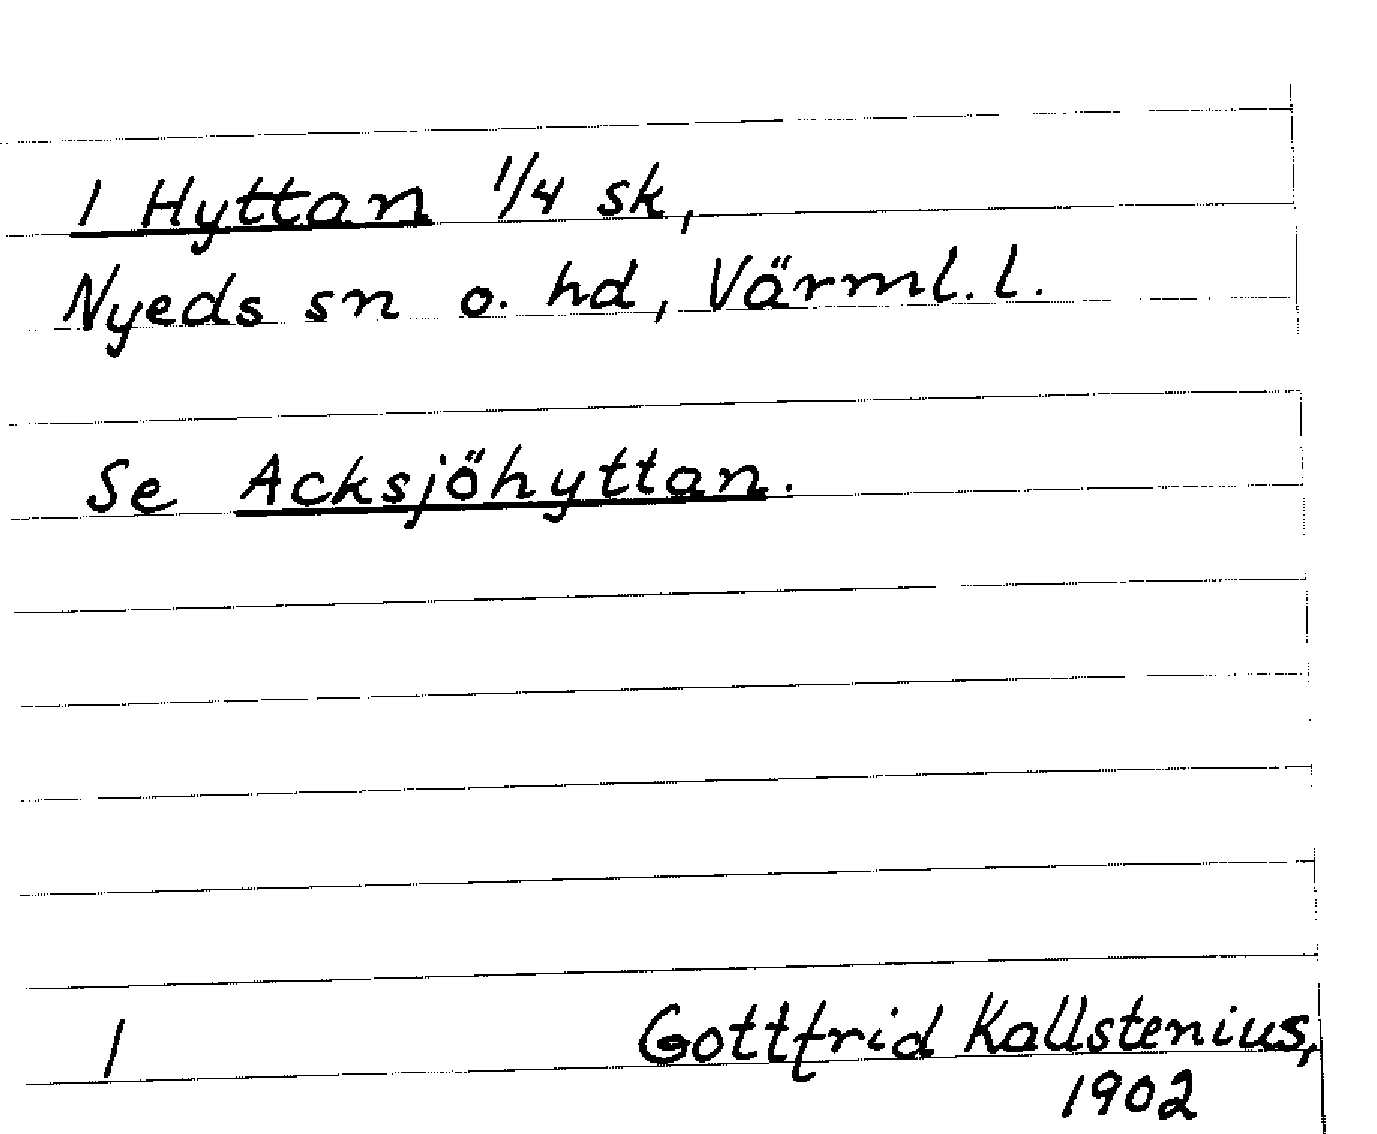 1 Hyttan 1/4 sk,
Nyeds sn o. hd, Värml. l.
Se Acksjöhyttan.
1 Gottfrid Kallstenius,
1902